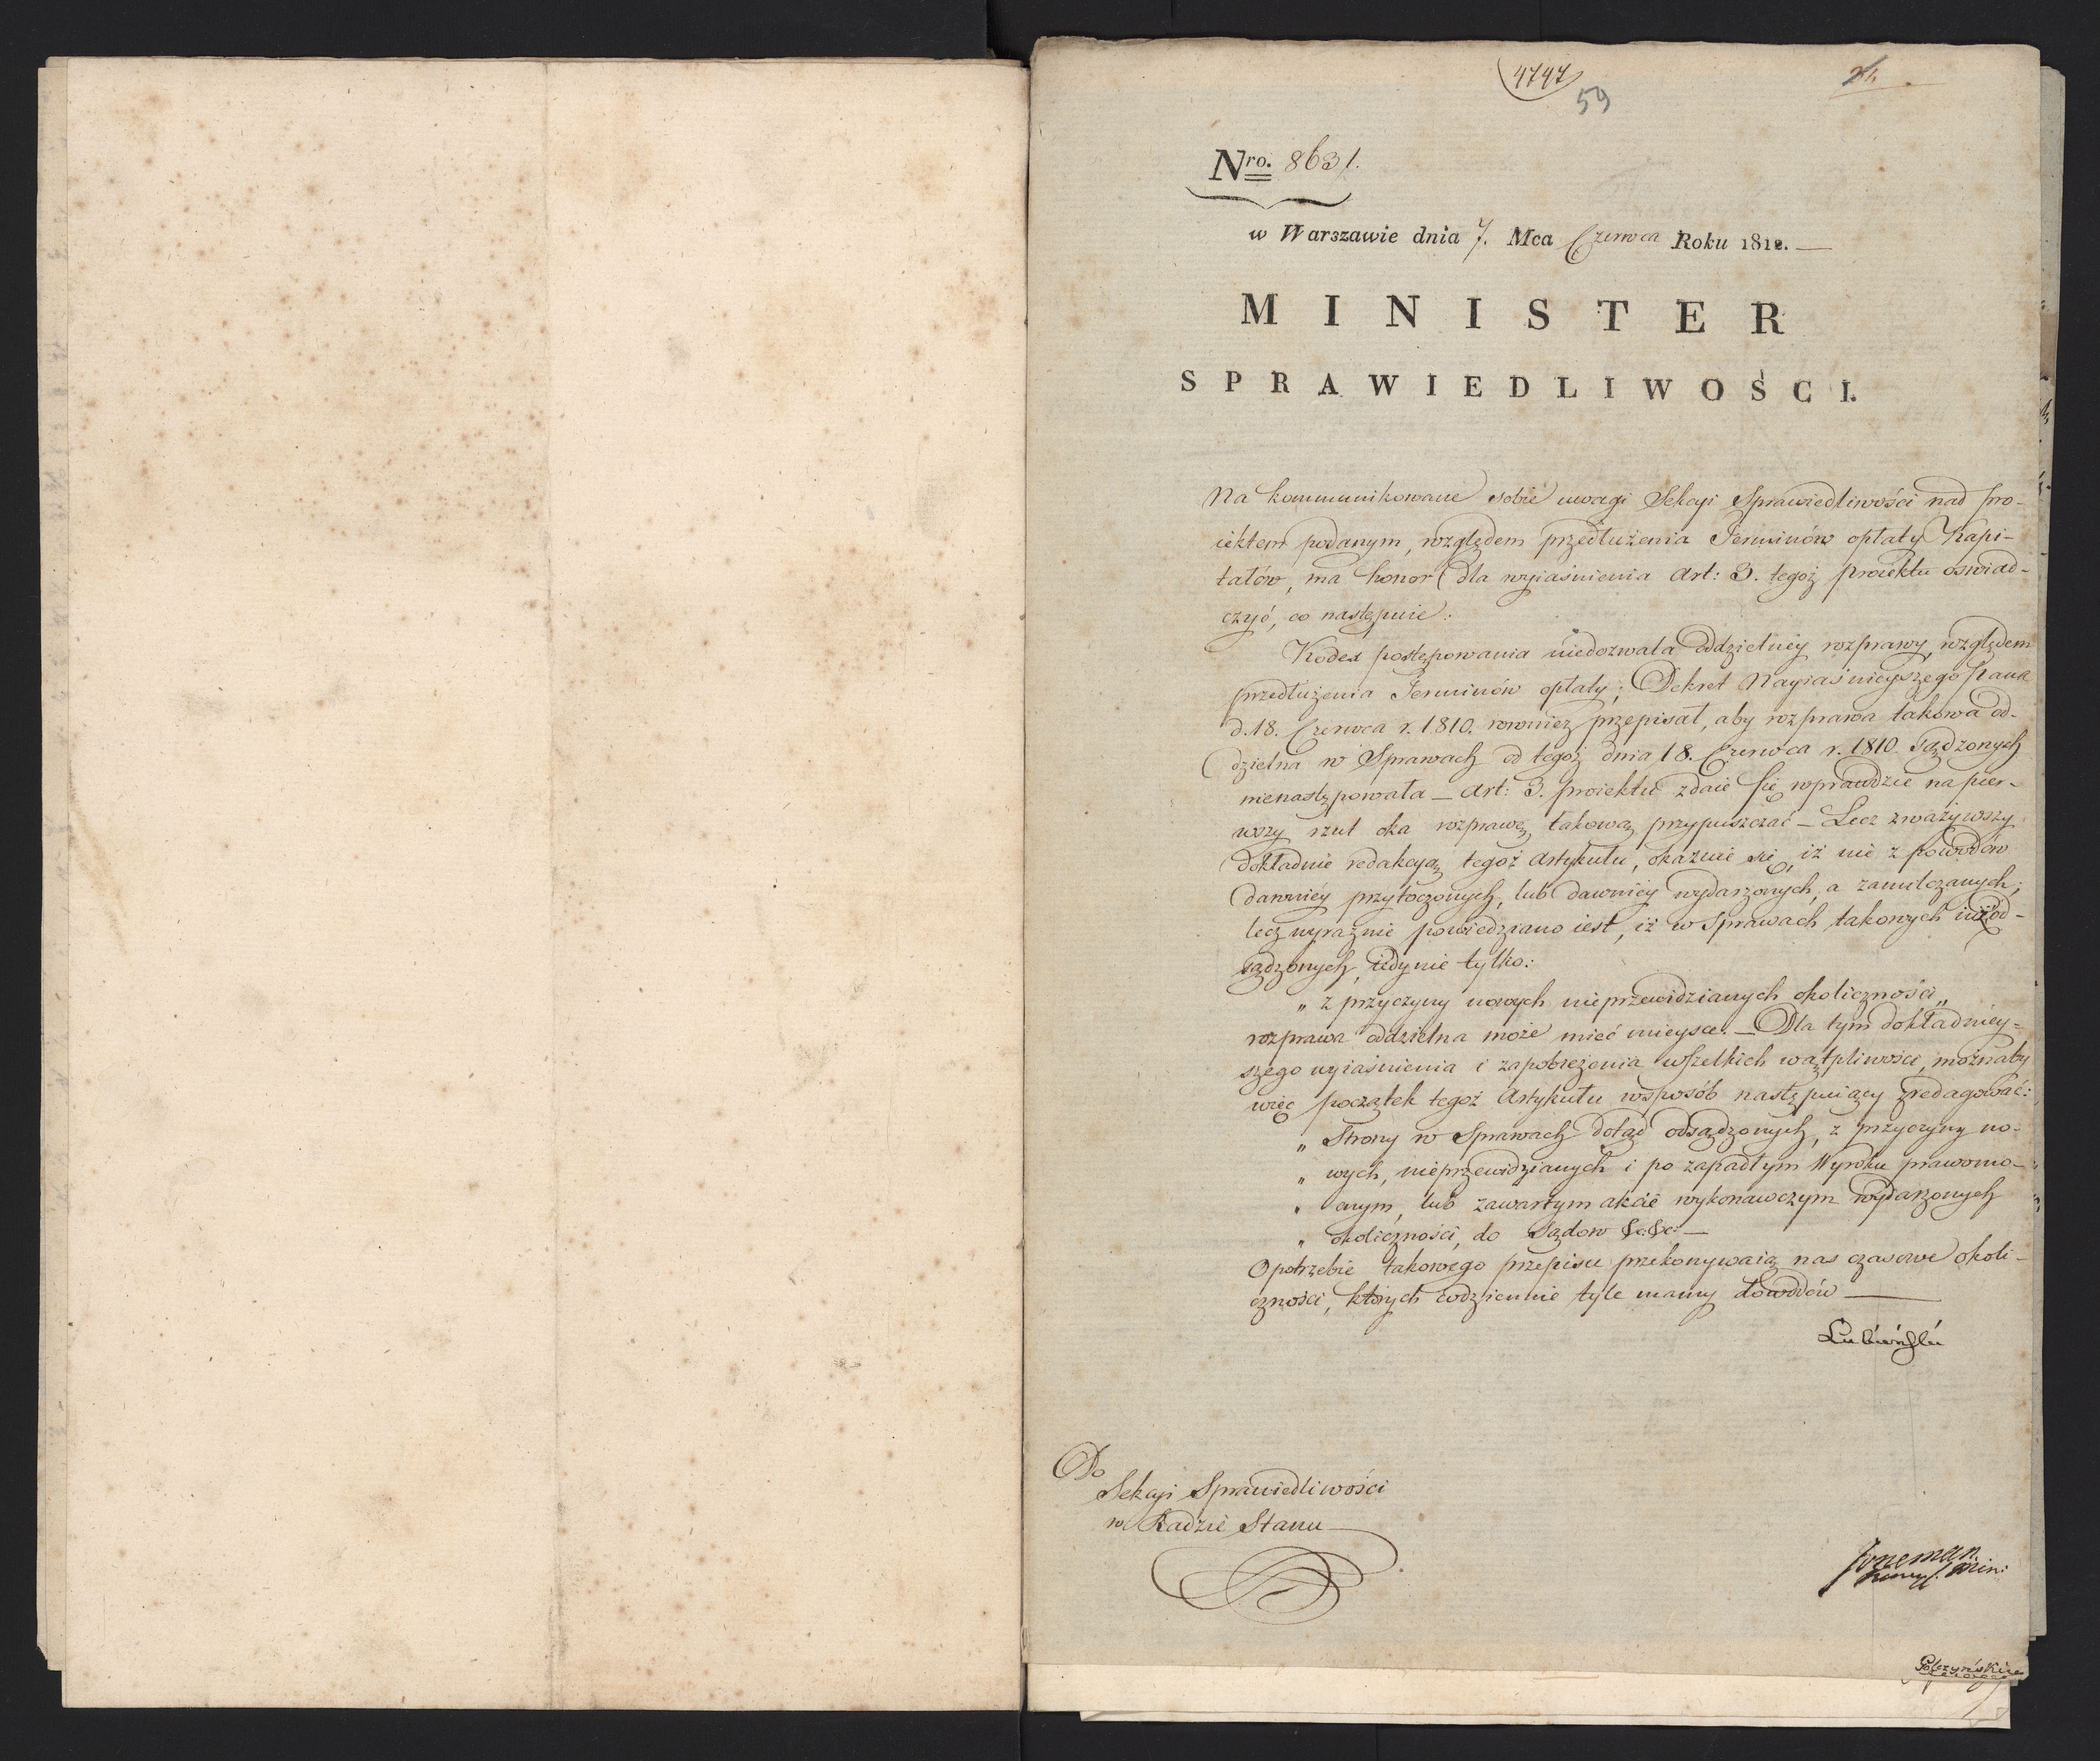 4747
59
Nro. 8631.
w Warszawie dnia 7. Mca Czerwca Roku 1812. —
MINISTER
SPRAWIEDLIWOŚCI.
Na kommunikowane sobie uwagi Sekcyi Sprawiedliwości nad pro-
iektem podanym, względem przedłużenia Terminów opłaty Kapi-
tałów, ma honor dla wyiaśnienia Art: 3. tegoż proiektu oswiad-
czyć, co następuie:
Kodex postępowania niedozwala oddzielney rozprawy, względem
przedłużenia Terminów opłaty; Dekret Nayiaśnieyszego Pana
d. 18. Czerwca r. 1810. rownież przepisał, aby rozprawa takowa od-
dzielna w Sprawach od tegoż dnia 18. Czerwca r. 1810 sądzonych
nienastępowała — Art: 3. proiektu zdaie się wprawdzie na pier-
wszy rzut oka rozprawę takową przypuszczać — Lecz zważywszy
dokładnie redakcyą tegoż Artykułu, okazuie się, iż nie z powodów
dawniéy przytoczonych, lub dawniéy wydarzonych, a zamilczanych;
lecz wyraźnie powiedziano iest, iż w Sprawach takowych iuż od-
sądzonych, iedynie tylko:
„ z przyczyny nowych nieprzewidzianych okoliczności „
rozprawa oddzielna może mieć mieysce. — Dla tym dokładniéy-
szego wyiaśnienia i zapobieżenia wszelkich wątpliwości, możnaby
więc początek tegoż Artykułu wsposób następuiący zredagować:
„ Strony w Sprawach dotąd odsądzonych, z przyczyny no-
„ wych, nieprzewidzianych i po zapadłym Wyroku prawomo-
„ cnym, lub zawartym akcie wykonawczym wydarzonych
„ okoliczności, do Sądow &c. &c. —
O potrzebie takowego przepisu przekonywaią nas czasowe okoli-
czności, ktorych codziennie tyle mamy dowodów —
Do
Sekcyi Sprawiedliwości
w Radzie Stanu